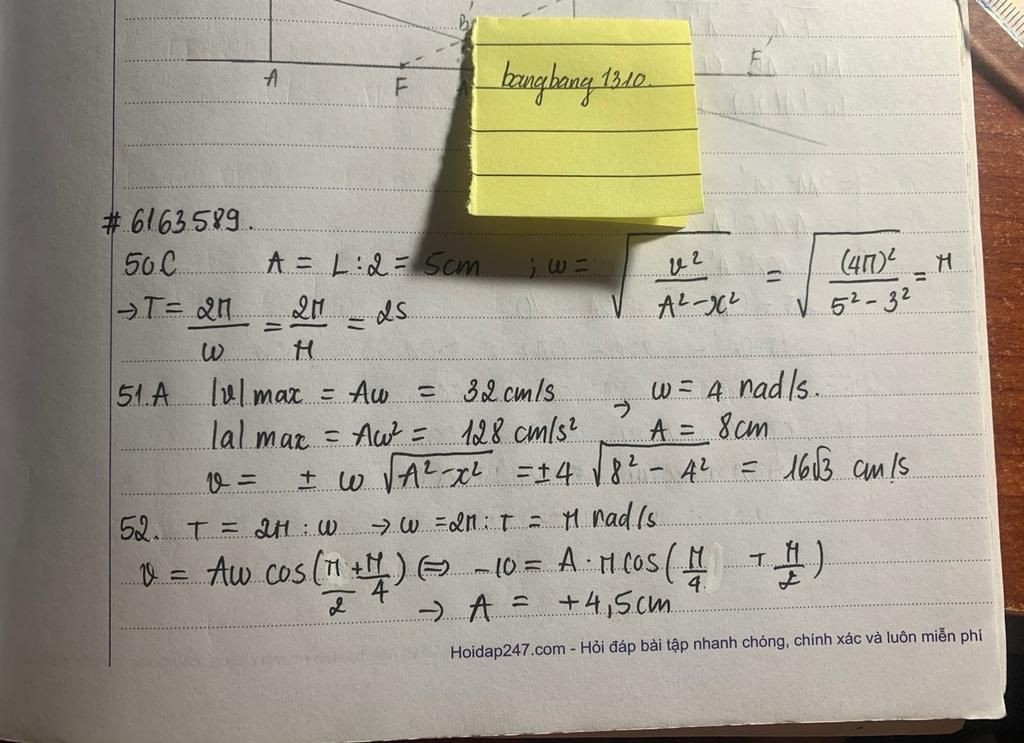 B
A F A F'
bangbang 1310.
#6163589.
50C A = L:2 = 5cm ; ω = √(v²/(A²-x²)) = √((4π)²/(5²-3²)) = π
→ T = 2π/ω = 2π/π = 2s
51.A |v| max = Aω = 32 cm/s → ω = 4 rad/s.
|a| max = Aω² = 128 cm/s² A = 8cm
v = ± ω √(A²-x²) = ±4 √(8²-4²) = 16√3 cm/s
52. T = 2π : ω → ω = 2π : T = π rad/s
v = Aω cos(π/2 + π/4) ⇔ -10 = A.π cos(π/4 + π/2)
→ A = +4,5cm
Hoidap247.com - Hỏi đáp bài tập nhanh chóng, chính xác và luôn miễn phí